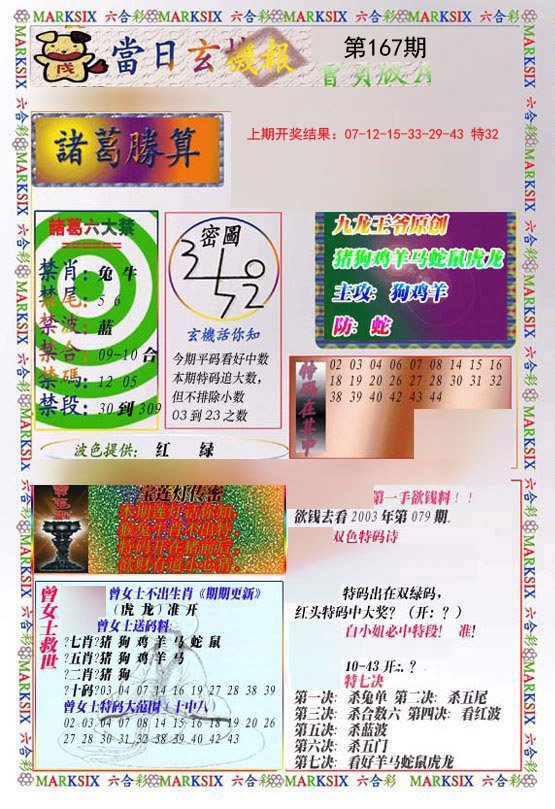 MARKSIX 六合彩 MARKSIX 六合彩 MARKSIX 六合彩 MARKSIX 六合彩
當日玄機報
第167期
戌
諸葛勝算
上期开奖结果: 07-12-15-33-29-43 特32
諸葛六大禁
禁肖: 兔 牛
禁尾: 5 6
禁波: 蓝
禁合: 09-10 合
禁碼: 12 05
禁段: 30 到 309
密圖
玄機話你知
今期平码看好中数
本期特码追大数,
但不排除小数
03 到 23 之数
九龙王爷原创
猪狗鸡羊马蛇鼠虎龙
主攻: 狗鸡羊
防: 蛇
特码在其中
02 03 04 06 07 08 14 15 16
18 19 20 26 27 28 30 31 32
38 39 40 42 43 44
波色提供: 红 绿
宝莲灯传密
第一手欲钱料!!
欲钱去看 2003 年第 079 期.
双色特码诗
特码出在双绿码,
红头特码中大奖? (开: ? )
白小姐必中特段! 准!
10-43 开:. ?
特七决
第一决: 杀兔单 第二决: 杀五尾
第三决: 杀合数六 第四决: 看红波
第五决: 杀蓝波
第六决: 杀五门
第七决: 看好羊马蛇鼠虎龙
曾女士救世
曾女士不出生肖《期期更新》
(虎 龙) 准 开
曾女士送码料:
?七肖?猪 狗 鸡 羊 马 蛇 鼠
?五肖?猪 狗 鸡 羊 马
?二肖?猪 狗
?十码?03 04 07 14 16 19 27 28 38 39
曾女士特码大范围 (十中八)
02 03 04 07 08 14 15 16 18 19 20 26
27 28 30 31 32 38 39 40 42 43
MARKSIX 六合彩 MARKSIX 六合彩 MARKSIX 六合彩 MARKSIX 六合彩